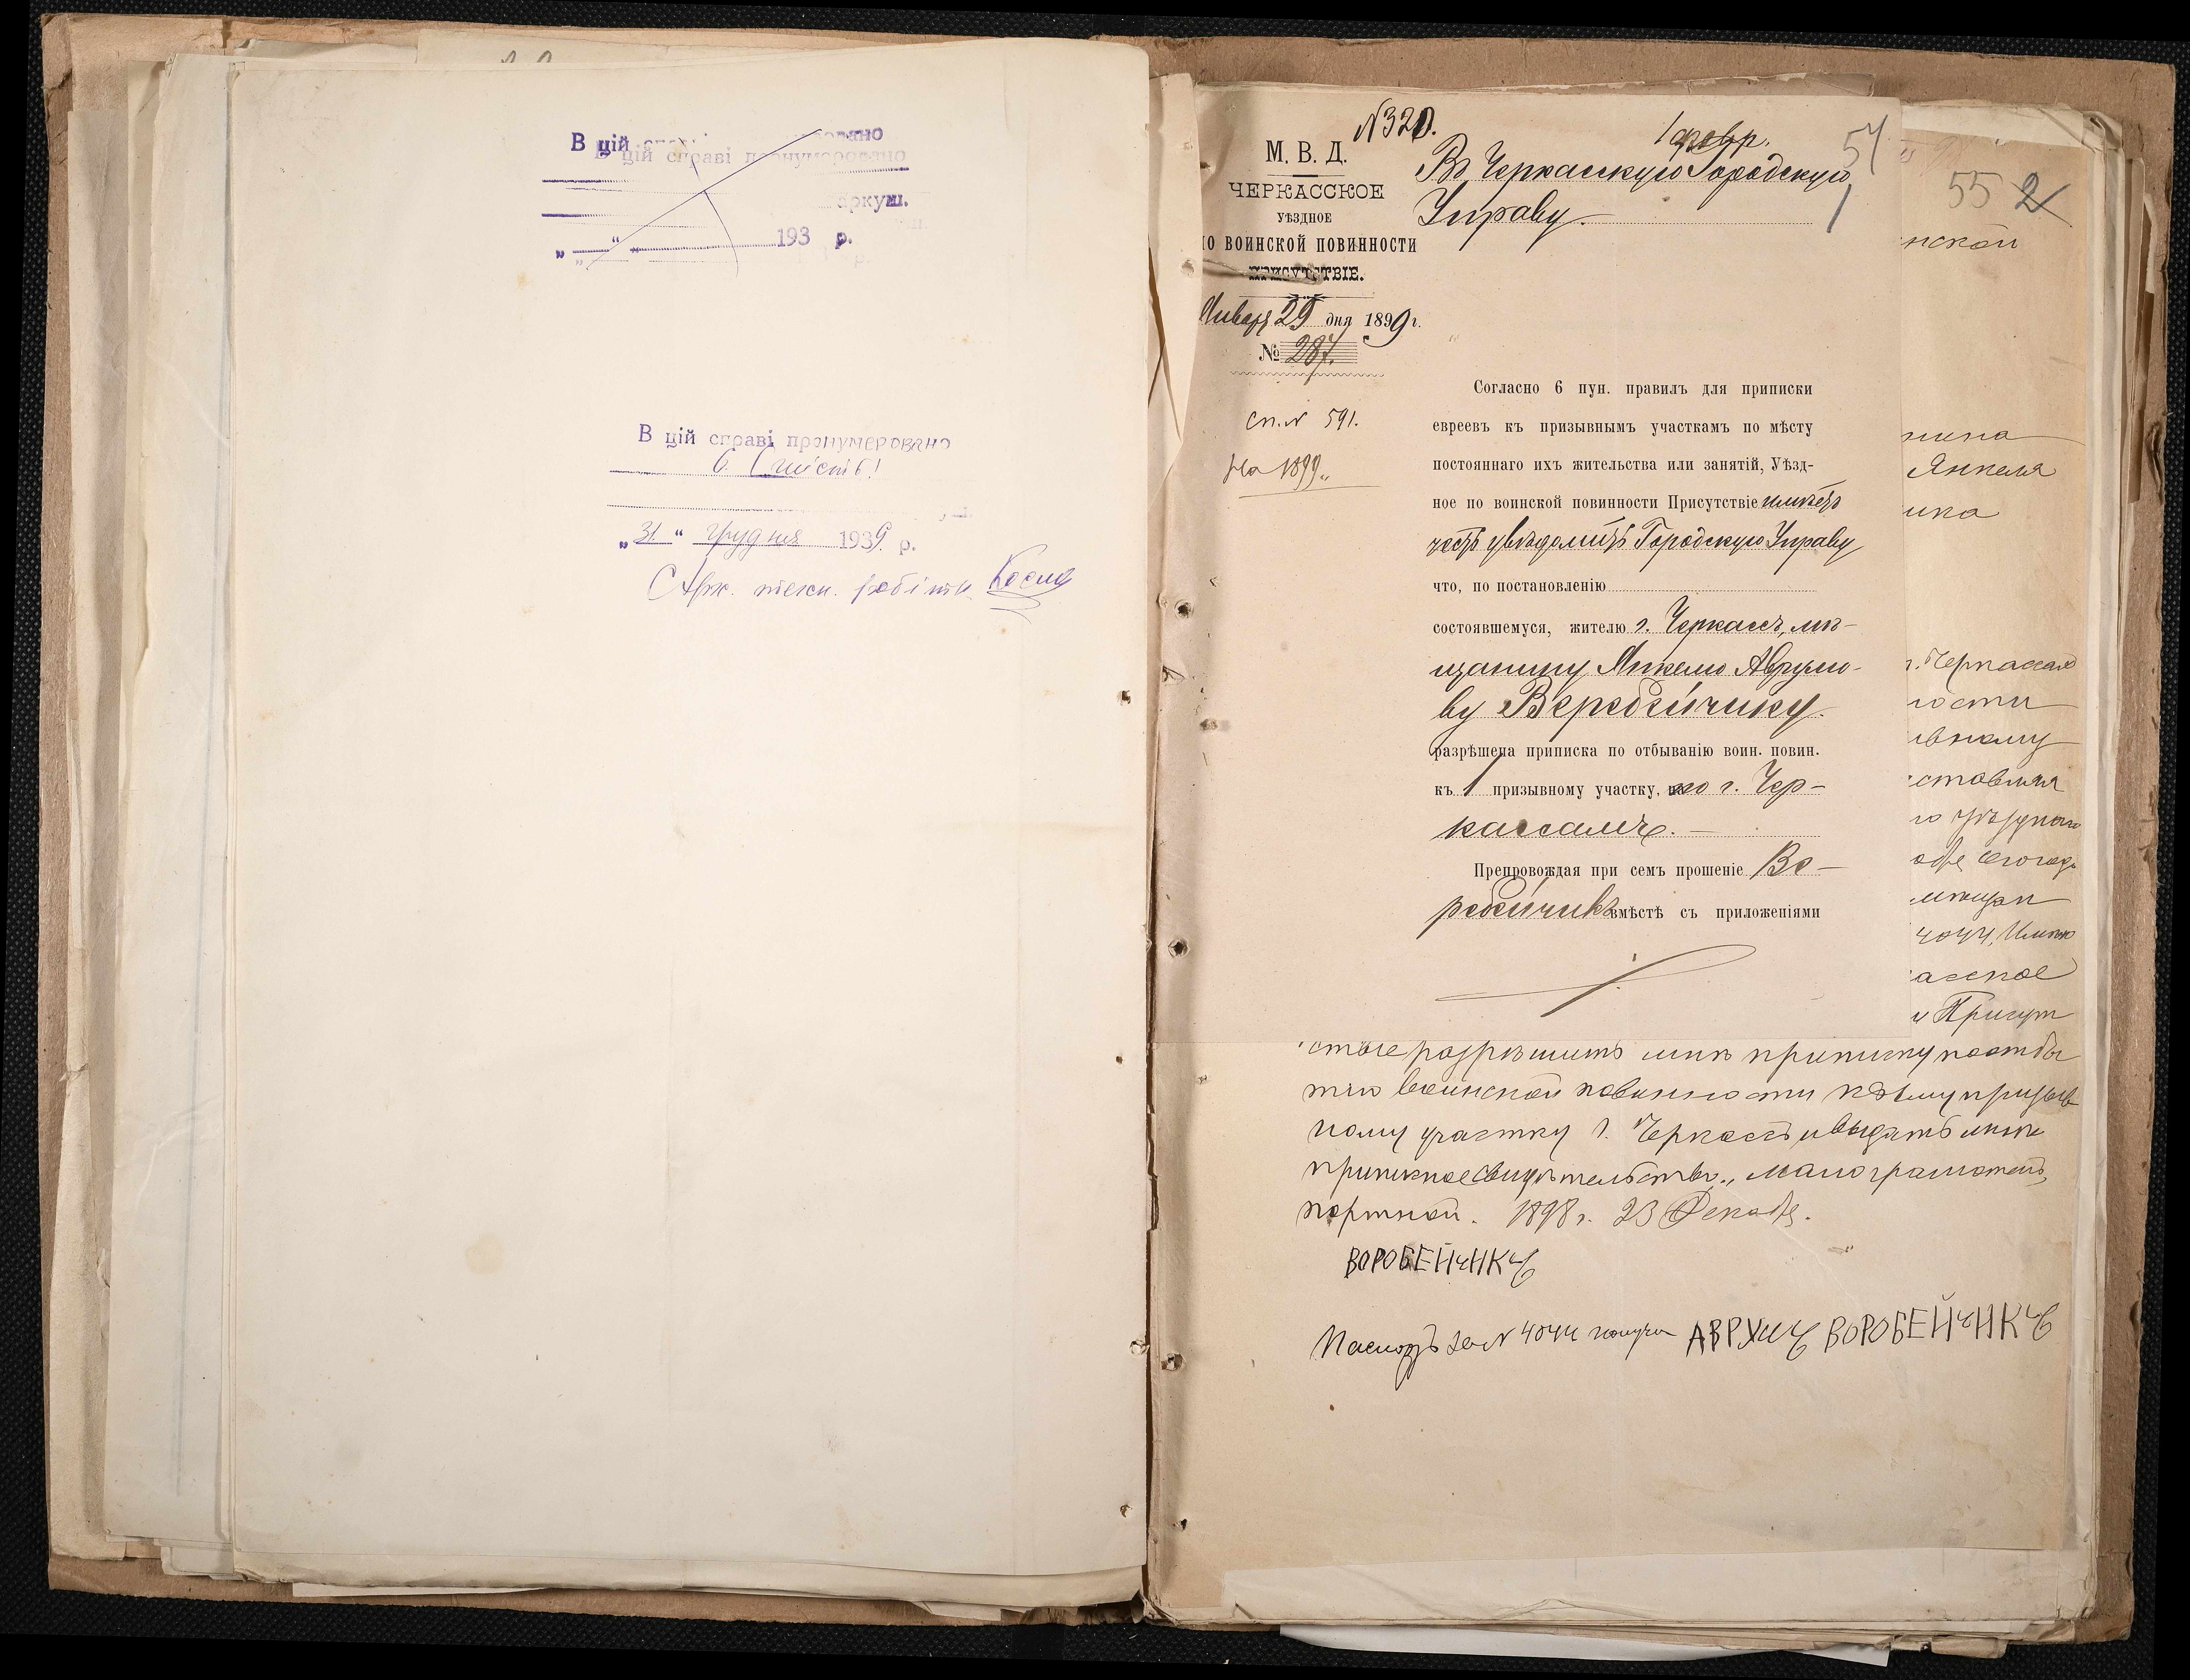 В цій справі пронумеровано
аркуш.
193 р.
В цій справі пронумеровано
6 (шість)
„31“ грудня 1939 р.
Арх. техн. робітн.
№320.
1 февр.
54
М. В. Д.
ЧЕРКАССКОЕ
УѢЗДНОЕ
ПО ВОИНСКОЙ ПОВИННОСТИ
ПРИСУТСТВІЕ.
Января 29 дня 1899 г.
№ 287.
сп. № 591.
на 1899
Въ Черкасскую Городскую
Управу.
1
Согласно 6 пун. правилъ для приписки
евреевъ къ призывнымъ участкамъ по мѣсту
постояннаго ихъ жительства или занятій, Уѣзд-
ное по воинской повинности Присутствіе имѣетъ
честь увѣдомить Городскую Управу
что, по постановленію
состоявшемуся, жителю г. Черкассъ, мѣ-
щанину Янкелю Аврумо-
ву Воробейчику.
разрѣшена приписка по отбыванію воин. повин.
къ 1 призывному участку, по г. Чер-
кассамъ.
Препровождая при семъ прошеніе Во-
робейчикъ вмѣстѣ съ приложеніями
55 2
нской
нина
Янкеля
ика
г. Черкассах
ности
ивному
ставляя
мѣщан
4044,
асское
и Присут
ствіе разрѣшить мнѣ приписку по отбы
тію воинской повинности къ 1му призыв
ному участку г. Черкассъ и выдать мнѣ
приписное свидѣтельство, малограмотенъ,
портной. 1898 г. 23 Декабр.
ВОРОБЕЙЧИКЪ
Паспортъ за № 4044 получ АВРУМЪ ВОРОБЕЙЧИКЪ